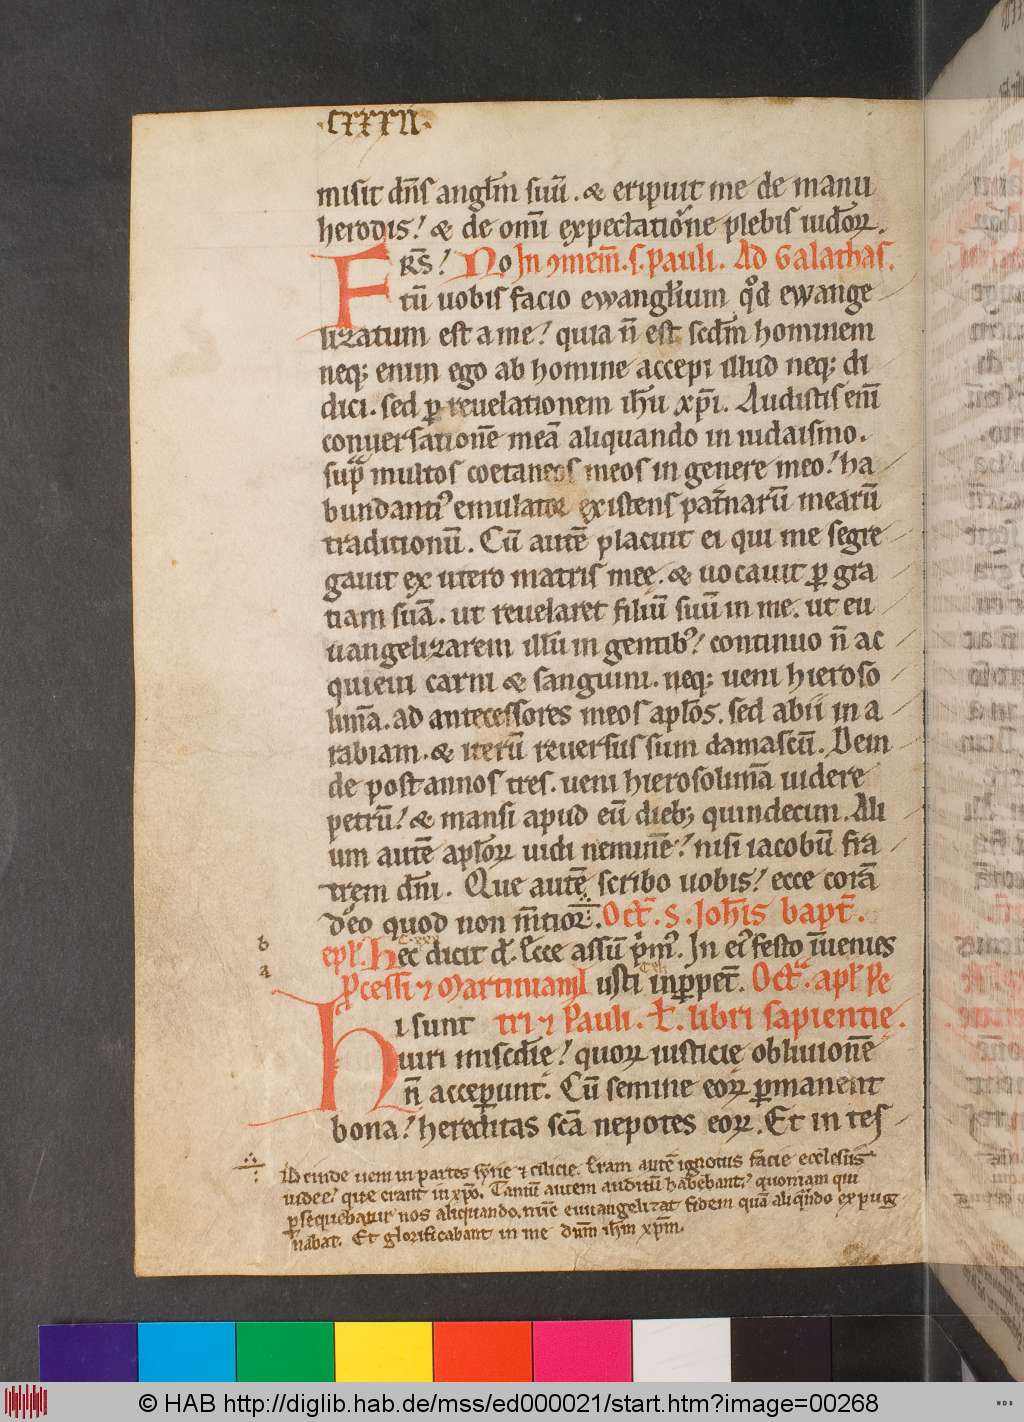 ·CXXXII·
misit dn̄s angl̄m suū. & eripuit me de manu
herodis! & de om̄i expectatióne plebis iudeorꝝ.
FRS̄! No In ꝯmem̄. s. pauli. Ad Galathas.
tū uobis facio ewangl̄ium qd̓ ewange
lizatum est a me! quia n̄ est scd̄m hominem
neq; enim ego ab homine accepi illud neq; di
dici. sed ꝑ reuelationem ih̄u xp̄i. Audistis eni̅
conuersationē meā aliquando in iudaismo.
sup̄ multos coetaneos meos in genere meo! ha
bundantiꝰ emulator existens pat̄narū mearū
traditionū. Cū autē placuit ei qui me segre
gauit ex utero matris meę. & uocauit ꝑ gra
tiam suā. ut reuelaret filiū suū in me. ut eu
uangelizarem illū in gentibꝰ! continuo n̄ ac
quieui carni & sanguini. neq; ueni hieroso
limā. ad antecessores meos apl̄os. sed abii in a
rabiam. & iterū reuersus sum damascū. Dein
de post annos tres. ueni hierosolimā uidere
petrū! & mansi apud eū dieb; quindecim. Ali
um autē apl̄orꝝ uidi neminē! nisi iacobū fra
trem dn̄i. Que autē scribo uobis! ecce corā
deo quod non m̄tior. Oct̄. s. Ioh̄is bapt̄.
epl̄. Hec dicit d̄. Ecce assū p̄mꝰ. In eiꝰ festo īuenies
b
a
Ꝓcessi ⁊ Martiniani usti inꝑpet̄. Oct̄. apl̄ Pe
Hi sunt tri ⁊ Pauli. ł. libri sapientie.
uiri mis̄cdie! quorꝝ iusticie obliuionē
n̄ acceperunt. Cū semine eorꝝ ꝑmanent
bona! hereditas scā nepotes eorꝝ. Et in tes
Deinde ueni in partes syrie ⁊ cilicie. Eram autē ignotus facie ecclesiis
iudee! que erant in xp̄o. Tantū autem auditū habebant! quoniam qui
ꝑsequebatur nos aliquando. nunc euuangelizat fidem quā aliqn̄do expug
nabat. Et glorificabant in me dn̄m ih̄m xp̄m.
© HAB http://diglib.hab.de/mss/ed000021/start.htm?image=00268